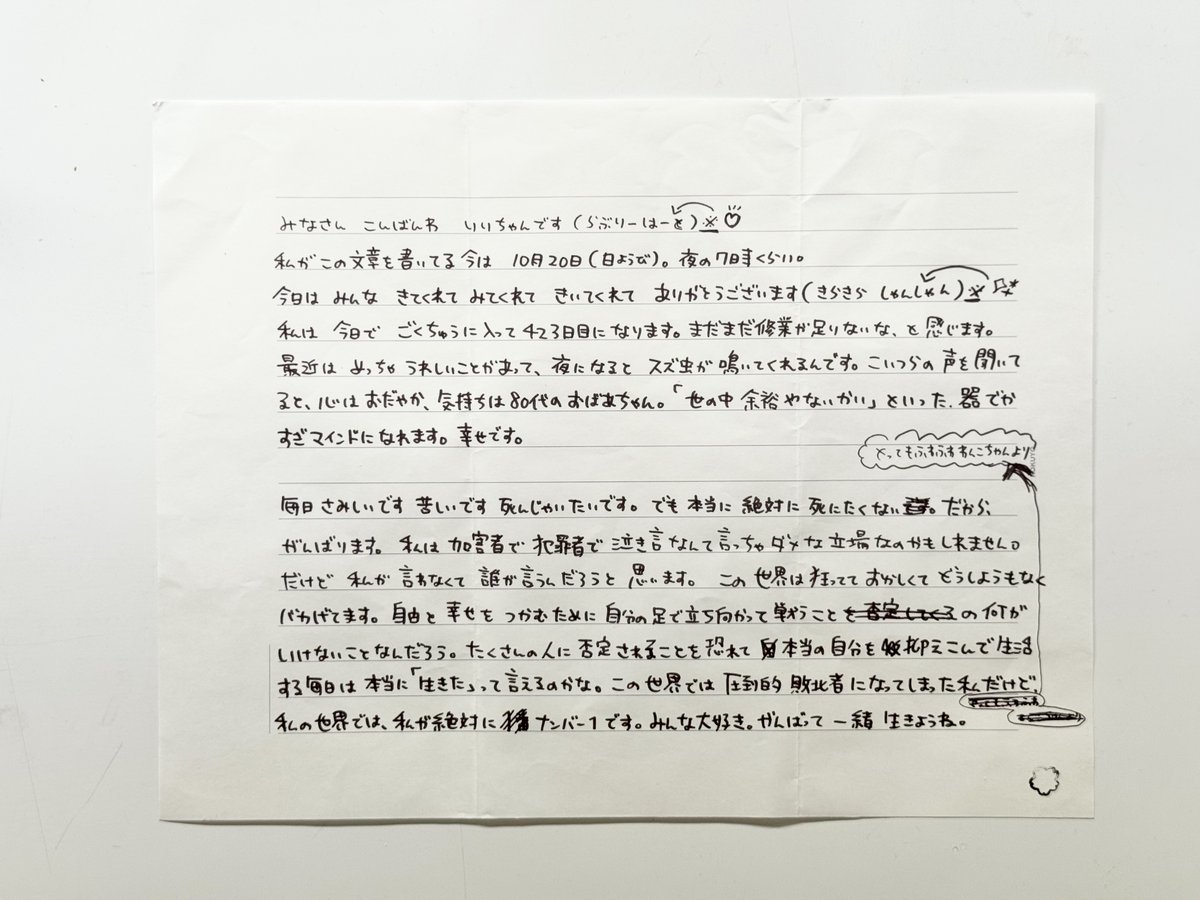 みなさん こんばんわ りりちゃんです(らぶりーはーと)※♡
私がこの文章を書いてる今は 10月20日(日ようび)。夜の7時くらい。
今日は みんな きてくれて みてくれて きいてくれて ありがとうございます(きらきら しゃんしゃん)※☆
私は 今日で ごくちゅうに入って423日目になります。まだまだ修業が足りないな、と感じます。
最近は めっちゃ うれしいことがあって、夜になると スズ虫が 鳴いてくれるんです。こいつらの 声を聞いて
ると、心は おだやか、気持ちは80代のおばあちゃん。「世の中 余裕やないかい」といった、器でか
すぎマインドになれます。幸せです。
とってもふわふわわんこちゃんより
毎日さみしいです 苦しいです 死んじゃいたいです。でも 本当に 絶対に 死にたくない。だから、
がんばります。私は 加害者で 犯罪者で 泣き言なんて言っちゃダメな立場なのかもしれません。
だけど 私が 言わなくて 誰が言うんだろうと 思います。この世界は狂ってて おかしくて どうしようもなく
バカげてます。自由と 幸せを つかむために 自分の足で立ち向かって 戦うこと を否定してくるの何が
いけないことなんだろう。たくさんの人に 否定されることを恐れて 本当の自分を 抑えこんで生活
する毎日は 本当に「生きた」って言えるのかな。この世界では 圧倒的 敗北者になってしまった私だけど、
私の世界では、私が絶対に ナンバー1です。みんな大好き。がんばって 一緒 生きようね。